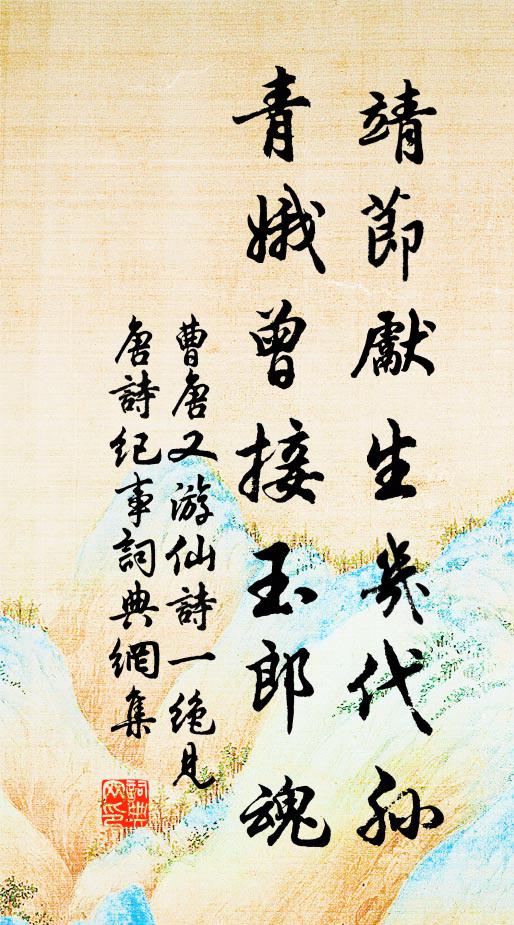 靖節獻生幾代孫
青娥曾接玉郎魂
曹唐又游仙詩一絶見
唐詩紀事詞典網集